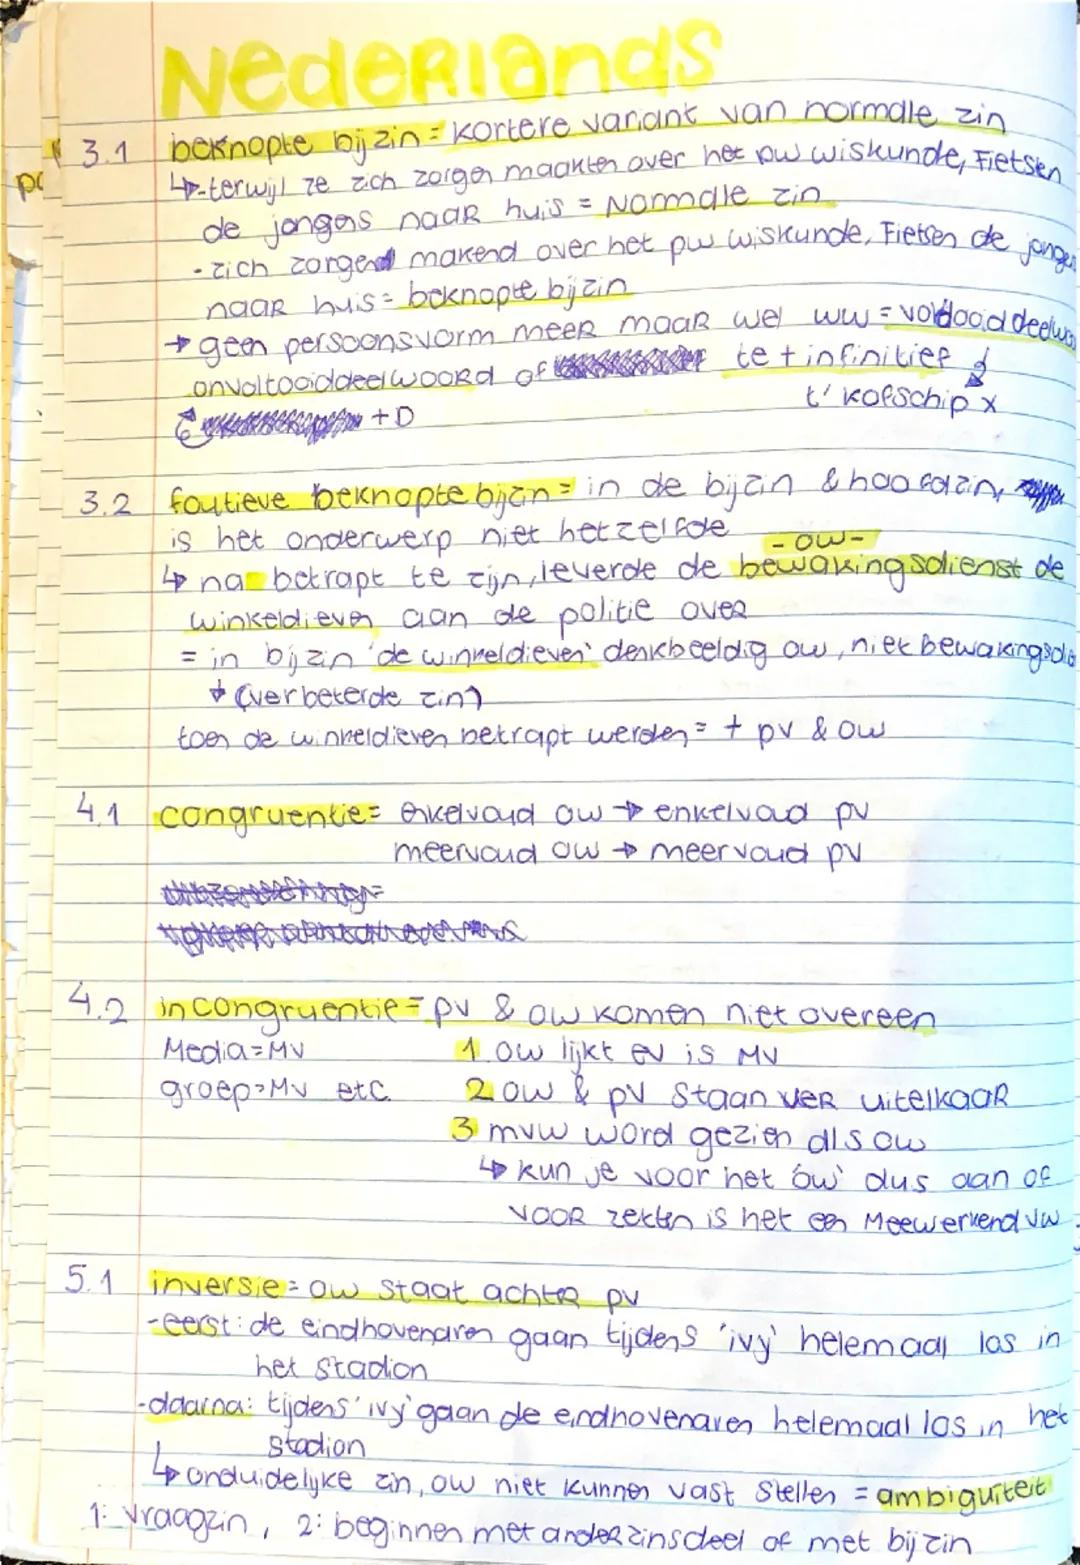 Nederlands
3.1 beknopte bijzin = kortere variant van normale zin
↳-terwijl ze zich zorgen maakten over het pw wiskunde, Fietsen
de jongens naar huis = Normale zin
- zich zorgend makend over het pw wiskunde, Fietsen de jongens
naar huis = beknopte bijzin
→ geen persoonsvorm meer maar wel ww = voldooiddeelwoo
onvoltooiddeelwoord of te + infinitief
t' kofschip x
+D
3.2 foutieve beknopte bijzin = in de bijzin & hoofdzin,
is het onderwerp niet hetzelfde
- ow -
↳ na betrapt te zijn, leverde de bewakingsdienst de
winkeldieven aan de politie over
= in bijzin 'de winkeldieven' denkbeeldig ow, niet bewakingsdie
↓ (verbeterde zin)
toen de winkeldieven betrapt werden = + pv & ow
4.1 congruentie = enkelvoud ow → enkelvoud pv
meervoud ow → meervoud pv
4.2 incongruentie = pv & ow komen niet overeen
Media = MV 1 ow lijkt ev is MV
groep = MV etc. 2 ow & pv staan ver uitelkaar
3 mvw word gezien als ow
↳ kun je voor het 'ow' dus aan of
voor zetten is het een Meewerkend vw
5.1 inversie = ow staat achter pv
-eerst: de eindhovenaren gaan tijdens 'ivy' helemaal los in
het stadion
-daarna: tijdens 'ivy' gaan de eindhovenaren helemaal los in het
stadion
↳ onduidelijke zin, ow niet kunnen vast stellen = ambiguïteit
1: vraagzin, 2: beginnen met ander zinsdeel of met bijzin